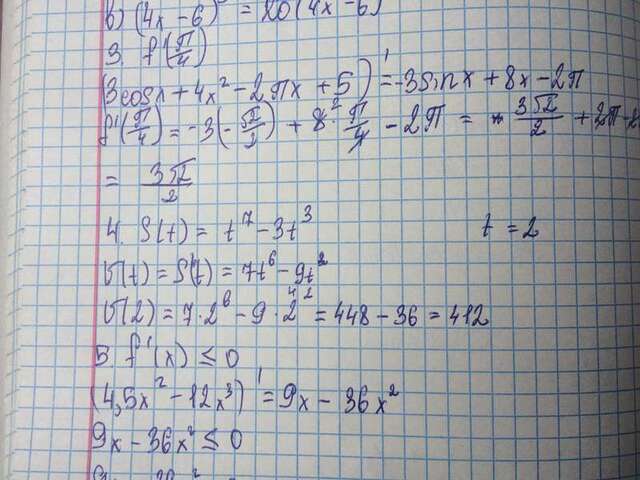 в) (4x - 6) = 80(4x - 6)
3. f'(π/4)
(3cosx + 4x² - 2πx + 5)' = -3sinx + 8x - 2π
f'(π/4) = -3(-√2/2) + 8² · π/4 - 2π = 3√2/2 + 2π -
= 3√2/2
4. S(t) = t⁷ - 3t³ t = 2
V(t) = S'(t) = 7t⁶ - 9t²
V(2) = 7·2⁶ - 9·2² = 448 - 36 = 412
5. f'(x) ≤ 0
(4,5x² - 12x³)' = 9x - 36x²
9x - 36x² ≤ 0